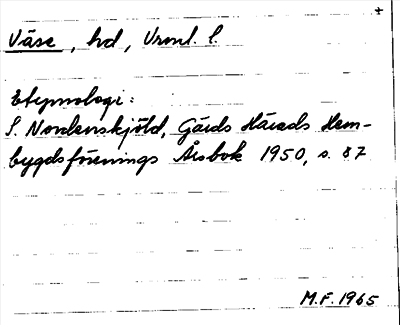 Väse, hd, Vrml. l.
Etymologi:
S. Nordenskjöld, Gärds Härads Hem-
bygdsförenings Årsbok 1950, s. 87
M.F. 1965